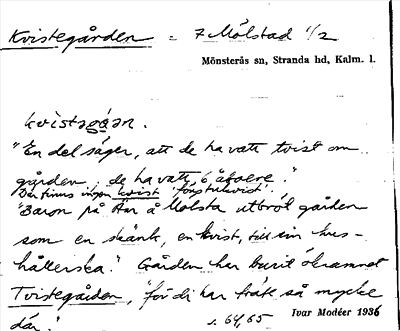 Kvistegården = 7 Mölstad 1/2
Mönsterås sn, Stranda hd, Kalm. l.
kvistagóan.
"En del säger, att de ha vatt tvist om
gården, de ha vatt 6 åboere."
Där finns ingen kvist 'förstukvist'.
"Baron på Än å Mölsta utbröt gården
som en skänk, en kvist, till sin hus-
hållerska." Gården har burit öknamnet
Tvistegården, "för di har trätt så mycke
där."
s. 64, 65
Ivar Modéer 1936